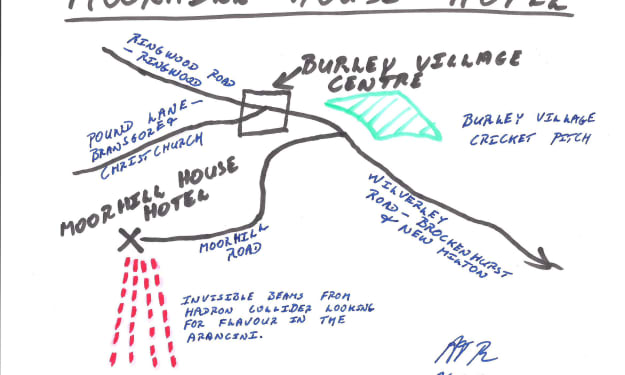 MOORHILL HOUSE HOTEL
RINGWOOD ROAD
– RINGWOOD
BURLEY VILLAGE
CENTRE
POUND LANE –
BRANSGORE &
CHRISTCHURCH
BURLEY VILLAGE
CRICKET PITCH
MOORHILL HOUSE
HOTEL
MOORHILL
ROAD
WILVERLEY
ROAD – BROCKENHURST
& NEW MILTON
INVISIBLE BEAMS FROM
HADRON COLLIDER LOOKING
FOR FLAVOUR IN THE
ARANCINI.